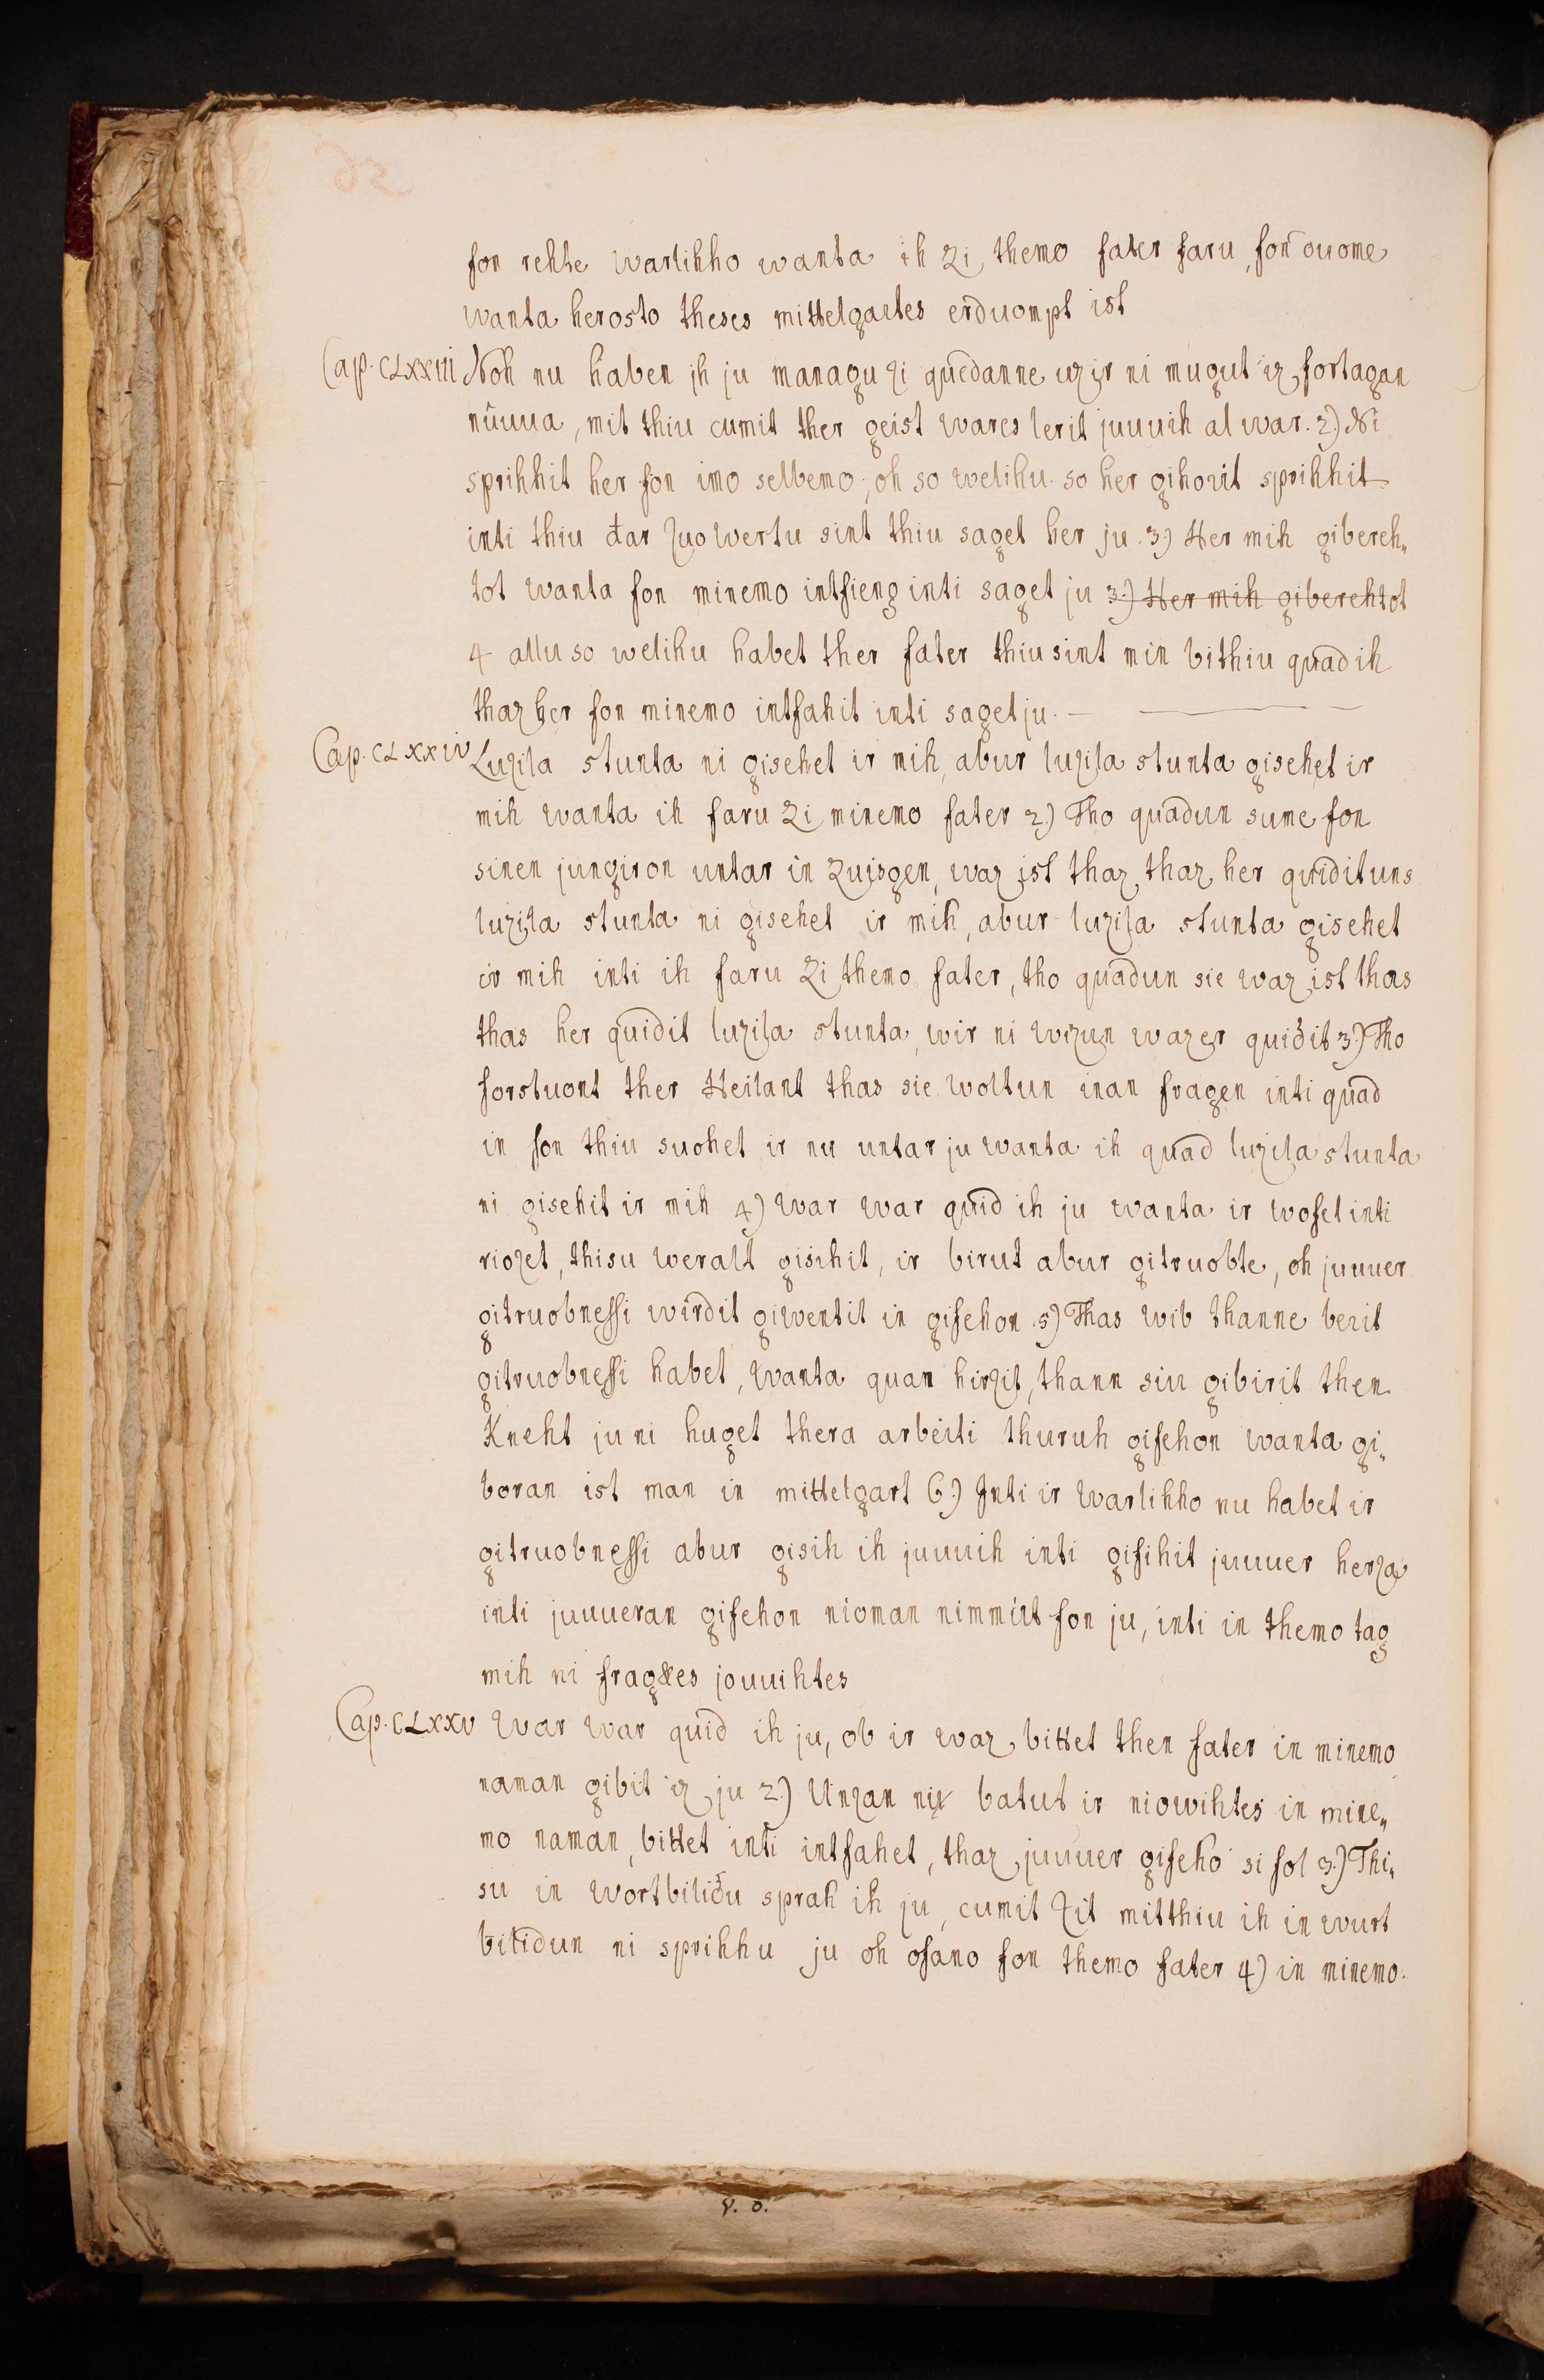 fon rehte warlihho wanta ih zi themo fater faru, fon ouome
wanta herosto theses mittelgartes erduompt ist
Cap. CLXXIII Noh nu haben ih ju managu zi quedanne uz ir ni mugut iz fortagan
nûuua, mit thiu cumit ther geist wares lerit juuuih al war. 2) Ni
sprihhit her fon imo selbemo, oh so welihu so her gihorit sprihhit
inti thiu đar zuowertu sint thiu saget her ju. 3) Her mih gibereh„
tot wanta fon minemo intfieng inti saget ju 3.) Her mih giberehtot
4 allu so welihu habet ther fater thiu sint min bithiu quad ih
thaz her fon minemo intfahit inti saget ju. —
Cap. CLXXIV Luzila stunta ni gisehet ir mih, abur luzila stunta gisehet ir
mih wanta ih faru zi minemo fater 2.) Tho quadun sume fon
sinen jungiron untar in zuisgen, waz ist thaz, thaz her quidit uns
luzila stunta ni gisehet ir mih, abur luzila stunta gisehet
ir mih inti ih faru zi themo fater, tho quadun sie waz ist thas
thas her quidit luzila stunta, wir ni wizun waz er quidit 3.) Tho
forstuont ther Heilant thas sie woltun inan fragen inti quad
in fon thiu suohet ir nu untar ju wanta ih quad luzila stunta
ni gisehit ir mih 4) War war quid ih ju wanta ir wofet inti
riozet, thisu weralt gisihit, ir birut abur gitruobte, oh juuuer
gitruobnessi wirdit giwentit in gifehon 5) Thas wib thanne berit
gitruobnessi habet, wanta quam hirzit, thann siu gibirit then
Kneht ju ni huget thera arbeiti thuruh gifehon wanta gi„
boran ist man in mittelgart 6.) Inti ir warlihho nu habet ir
gitruobnessi abur gisih ih juuuih inti gifihit juuuer herza
inti juuueran gifehon nioman nimmit fon ju, inti in themo tag
mih ni frag&es jouuihtes
Cap. CLXXV War war quid ih ju, ob ir waz bittet then fater in minemo
naman gibit iz ju 2.) Unzan nu batut ir niowihtes in mine„
mo naman, bittet inti intfahet, thaz juuuer gifeho si fol 3.) Thi„
su in wortbilidu sprah ih ju, cumit zit mitthiu ih in wurt
bilidun ni sprihhu ju oh ofano fon themo fater 4) in minemo.
V. O.